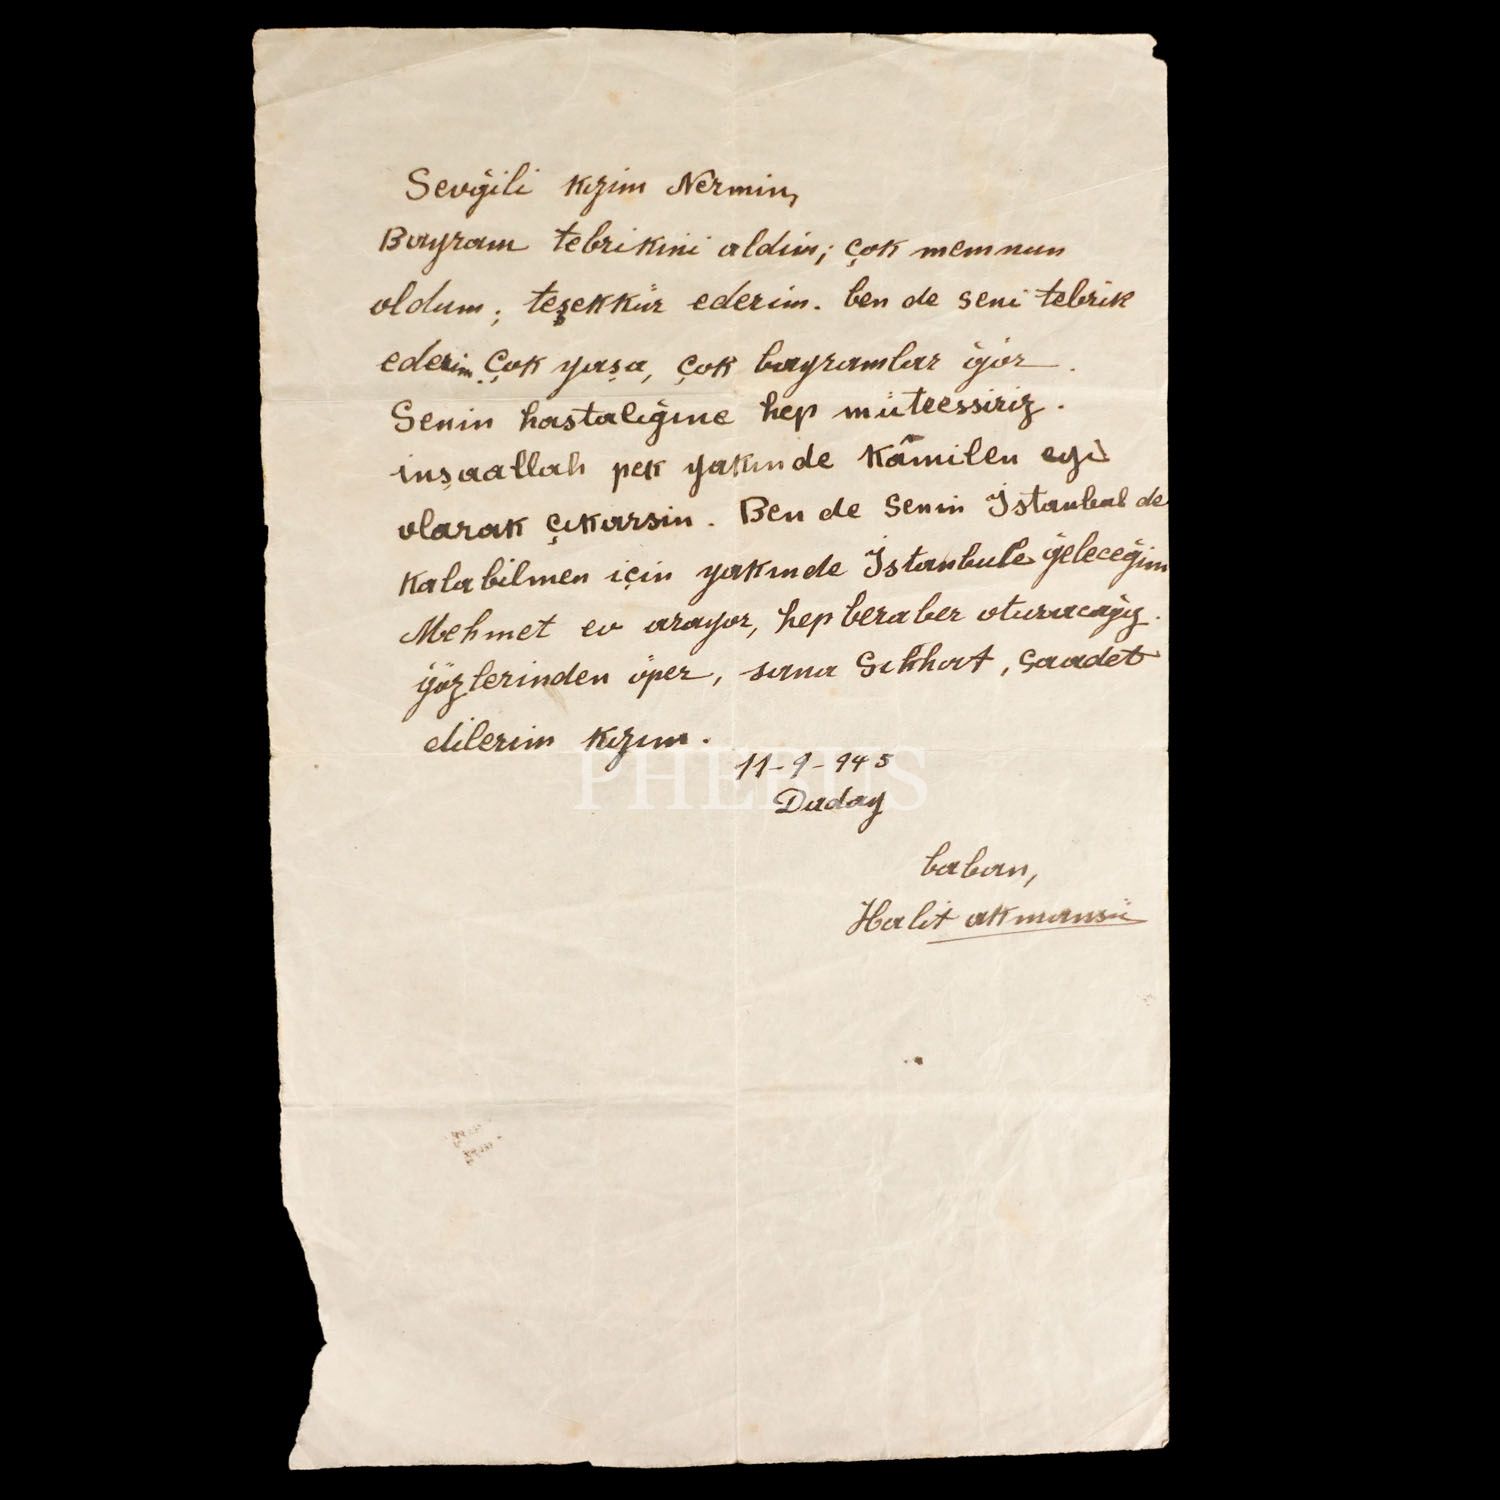 Sevğili kızım Nermin,
Bayram tebrikini aldım; çok memnun
oldum; teşekkür ederim. ben de seni tebrik
ederim. Çok yaşa, çok bayramlar ğör.
Senin hastalığına hep müteessiriz.
inşaallah pek yakında kâmilen eyi
olarak çıkarsın. Ben de senin İstanbul de
kalabilmen için yakında İstanbula ğeleceğim
Mehmet ev arayor, hep beraber oturacağız.
ğözlerinden öper, sana Sıhhat, Saadet
dilerim kızım.
PHEBUS
11-9-945
Daday
baban,
Halit akmansü